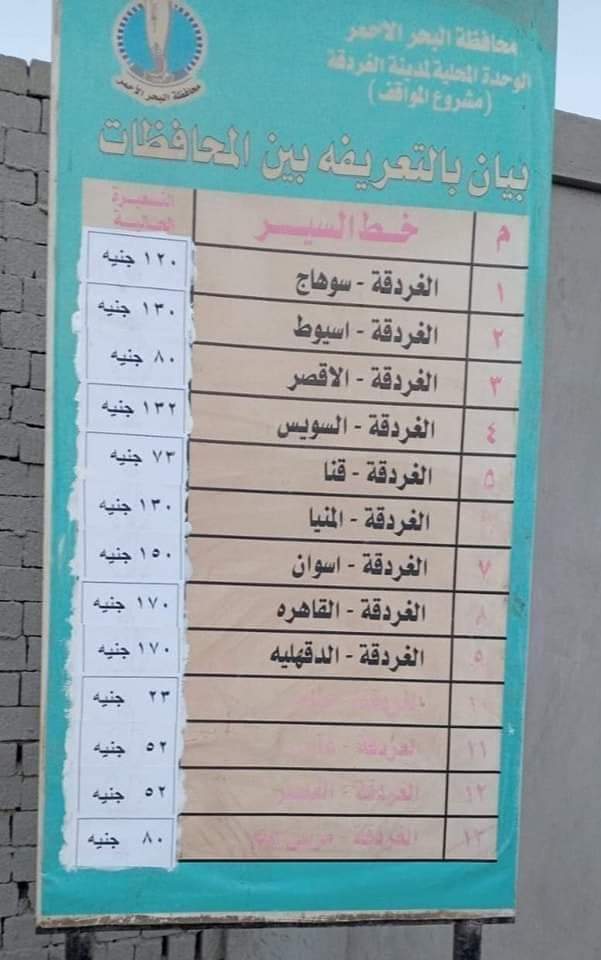 محافظة البحر الاحمر
محافظة البحر الاحمر
الوحدة المحلية لمدينة الغردقة
(مشروع المواقف)
بيان بالتعريفه بين المحافظات
م خط السير التسعيرة الحالية
١ الغردقة - سوهاج ١٢٠ جنيه
٢ الغردقة - اسيوط ١٣٠ جنيه
٣ الغردقة - الاقصر ٨٠ جنيه
٤ الغردقة - السويس ١٣٢ جنيه
٥ الغردقة - قنا ٧٣ جنيه
الغردقة - المنيا ١٣٠ جنيه
٧ الغردقة - اسوان ١٥٠ جنيه
٨ الغردقة - القاهره ١٧٠ جنيه
الغردقة - الدقهليه ١٧٠ جنيه
١٠ الغردقة - ٢٣ جنيه
١١ الغردقة - ٥٢ جنيه
١٢ الغردقة - القصير ٥٢ جنيه
١٣ الغردقة - مرسى علم ٨٠ جنيه